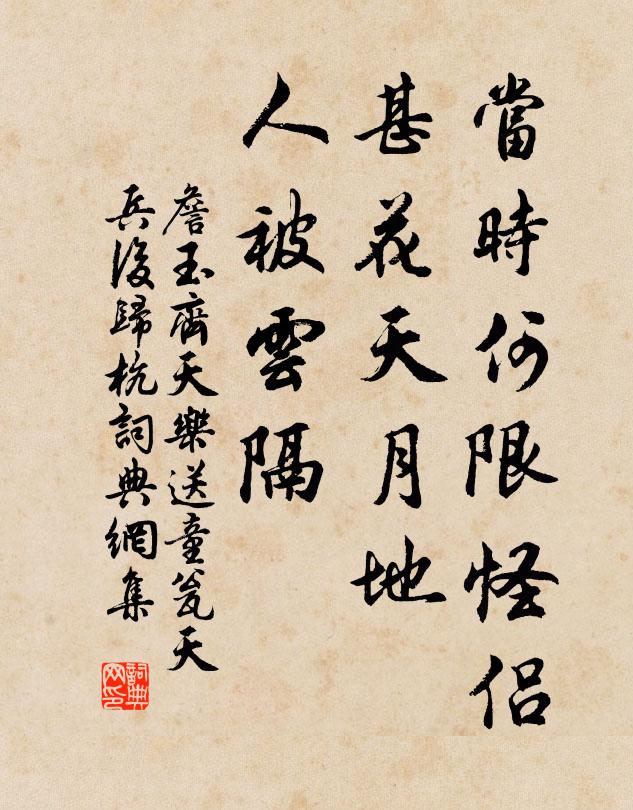 當時何限怪侶
甚花天月地
人被雲隔
詹玉齊天樂送童瓮天
兵後歸杭詞典網集
詞典
网印